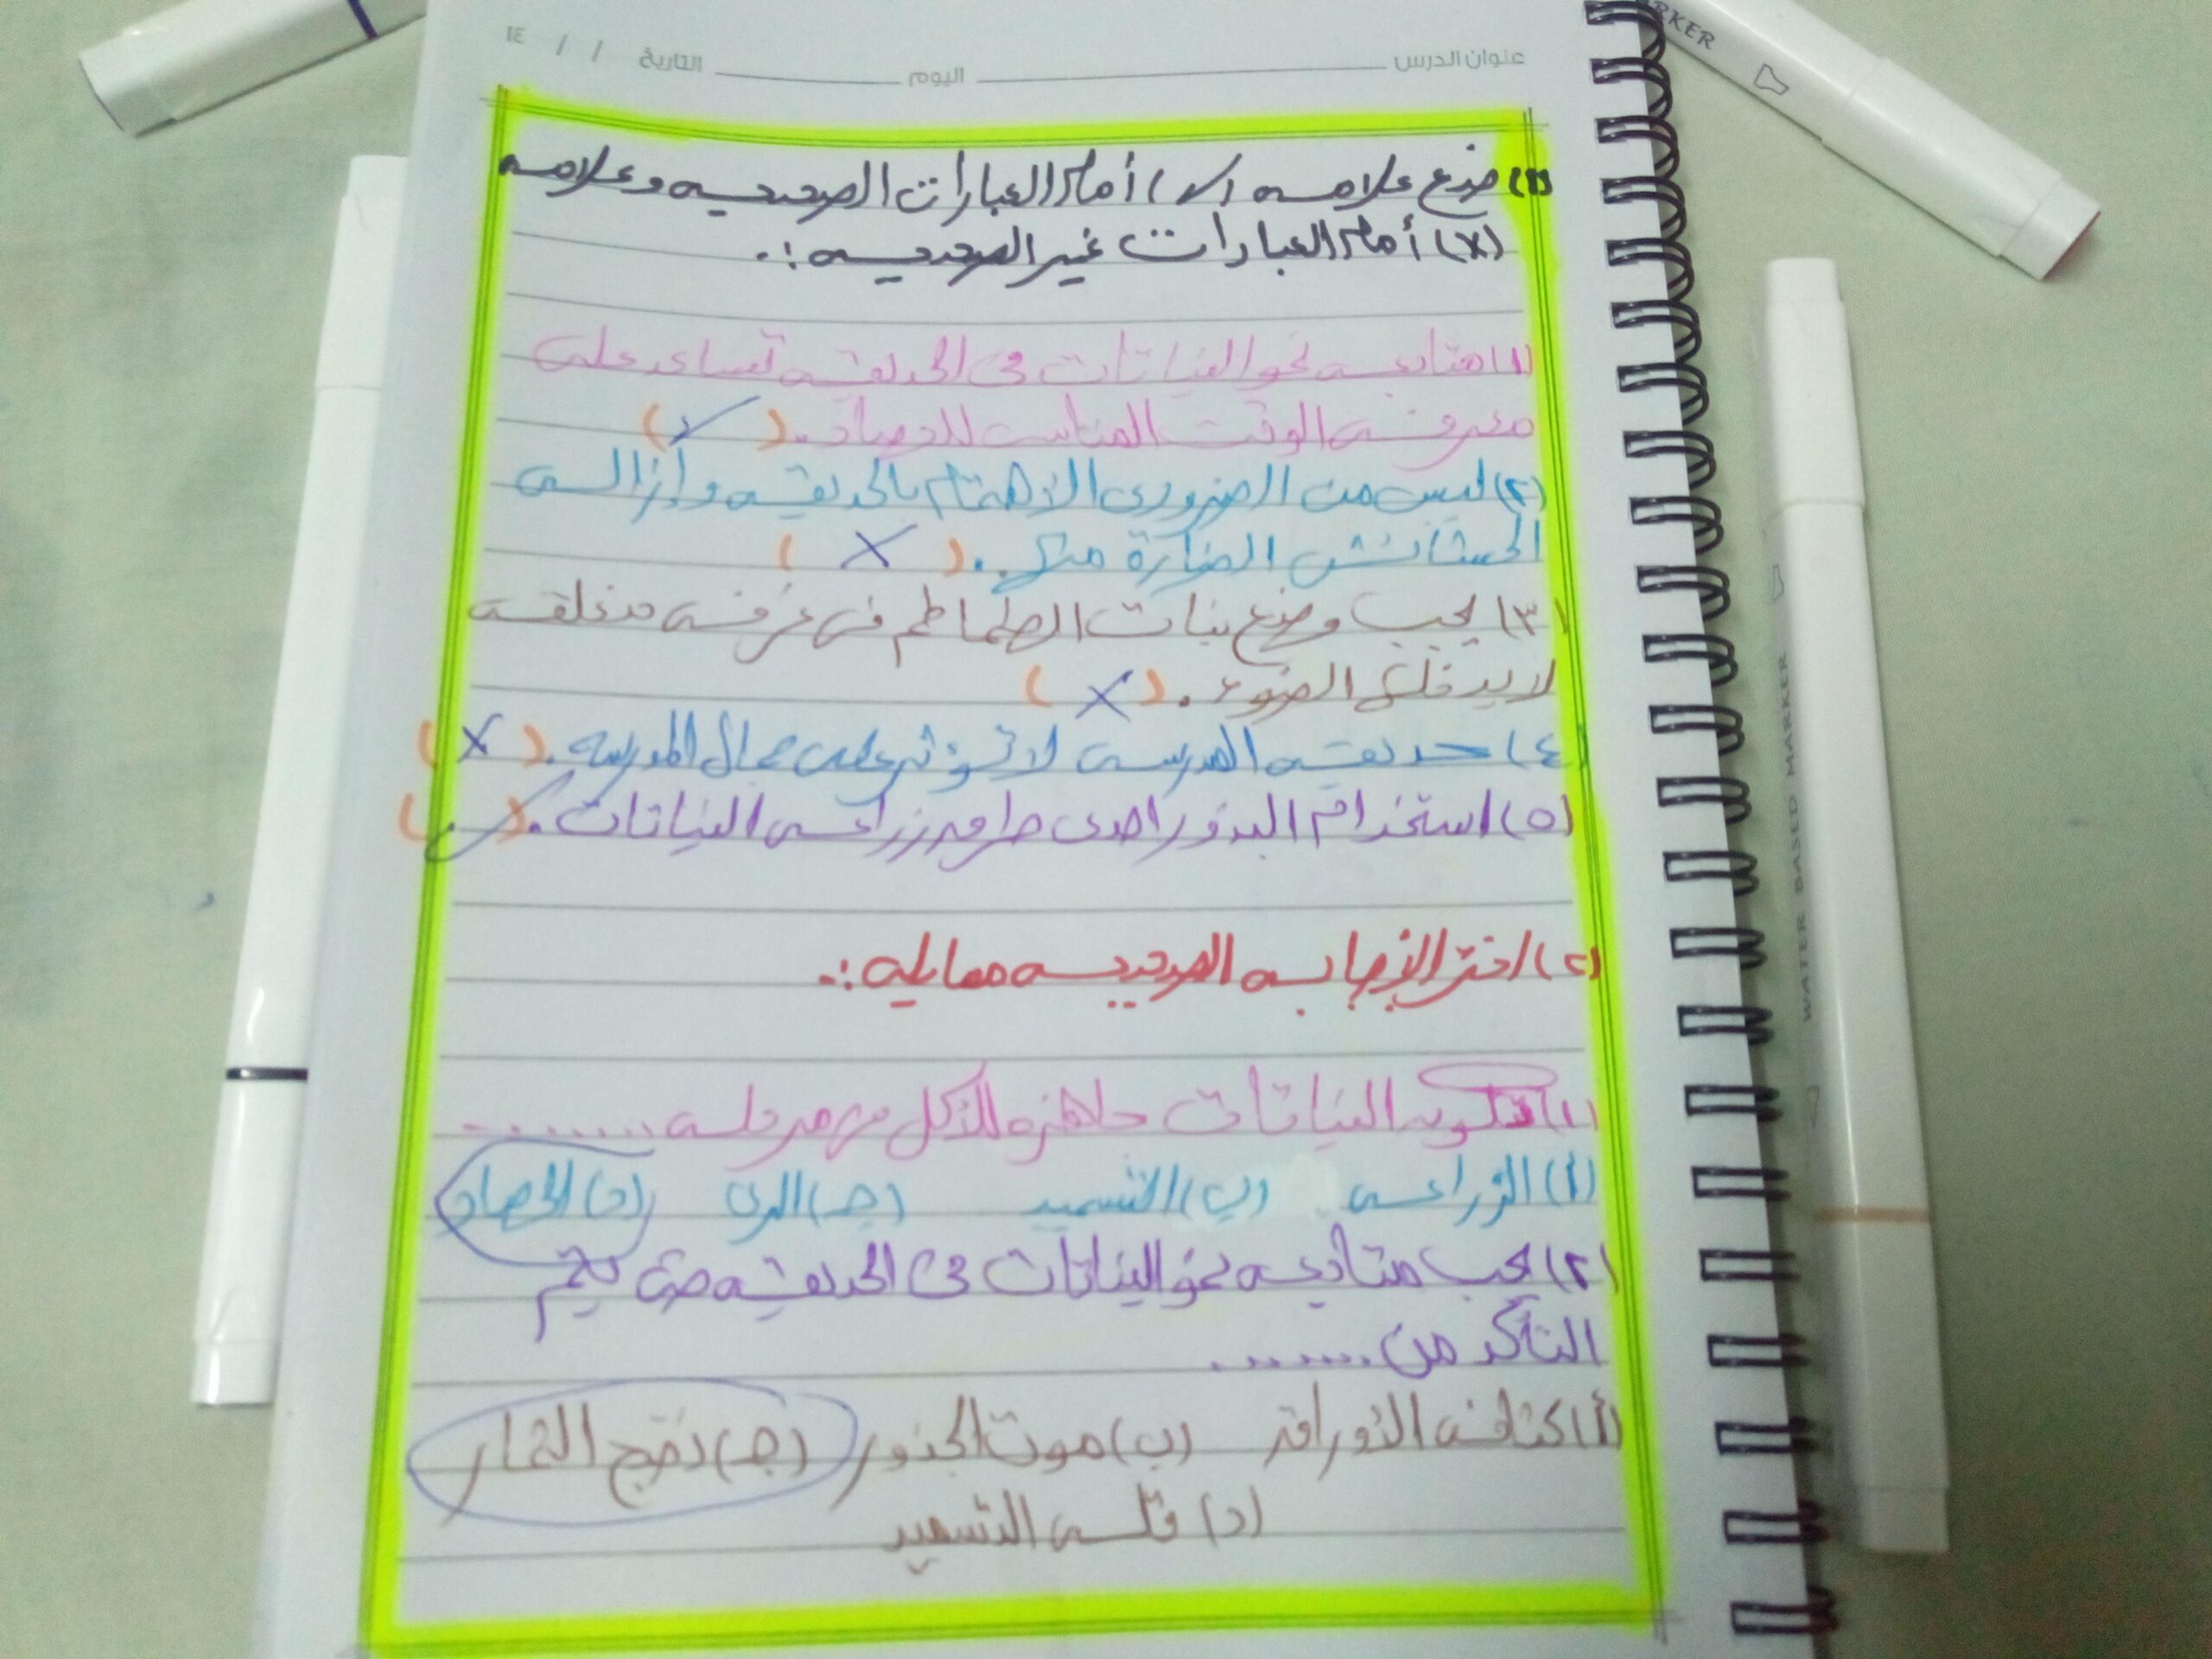 عنوان الدرس اليوم التاريخ / / ١٤
(١) ضع علامه (✓) أمام العبارات الصحيحه وعلامه
(X) أمام العبارات غير الصحيحه :.
(١) متابعه نمو النباتات فى الحديقه تساعد على
معرفه الوقت المناسب للحصاد. (✓)
(٢) ليس من الضرورى الأهتمام بالحديقه وإزاله
الحشائش الضارة منها. (X)
(٣) يجب وضع نبات الطماطم فى غرفه مغلقه
لا يدخلها الضوء. (X)
(٤) حديقه المدرسه لا تؤثر على جمال المدرسه. (X)
(٥) استخدام البذور احدى طرق زراعه النباتات. (✓)
(٢) اختر الإجابه الصحيحه مما يليه :.
(١) تكون النباتات جاهزه للأكل فى مرحله ........
(أ) الزراعه (ب) التسميد (جـ) الرى (د) الحصاد
(٢) يجب متابعه نمو النباتات فى الحديقه حتى يتم
التأكد من ........
(أ) كثافه الأوراق (ب) موت الجذور (جـ) نضج الثمار
(د) قله التسميد
MARKER
WATER BASED MARKER